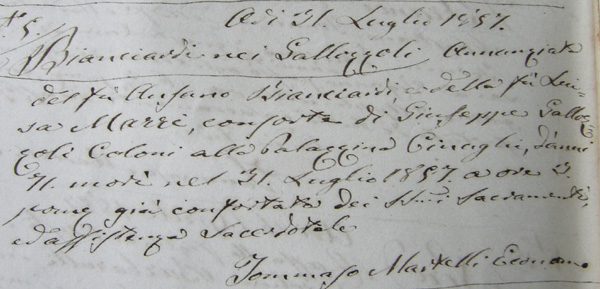 N° 5. Adì 31. Luglio 1857.
Bianciardi nei Gallozzoli Annunziata
del fù Ansano Bianciardi, e della fù Lui=
sa Marzi, consorte di Giuseppe Galloz=
zoli Coloni alla Palazzina Cinughi, d'anni
71. morì nel 31. Luglio 1857. a ore 3.
pome già confortata dei SSmi Sacramenti,
ed assistenza Sacerdotale
Tommaso Martelli Economo